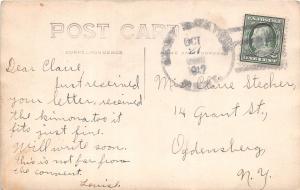 POST CARD
CORRESPONDENCE
OCT
27
Dear Claire,
Just received
your letter, received
the kimona too it
fits just fine.
Will write soon.
this is not far from
the convent.
Louise
Miss Claire Stecher,
14 Grant St,
Ogdensburg
N.Y.